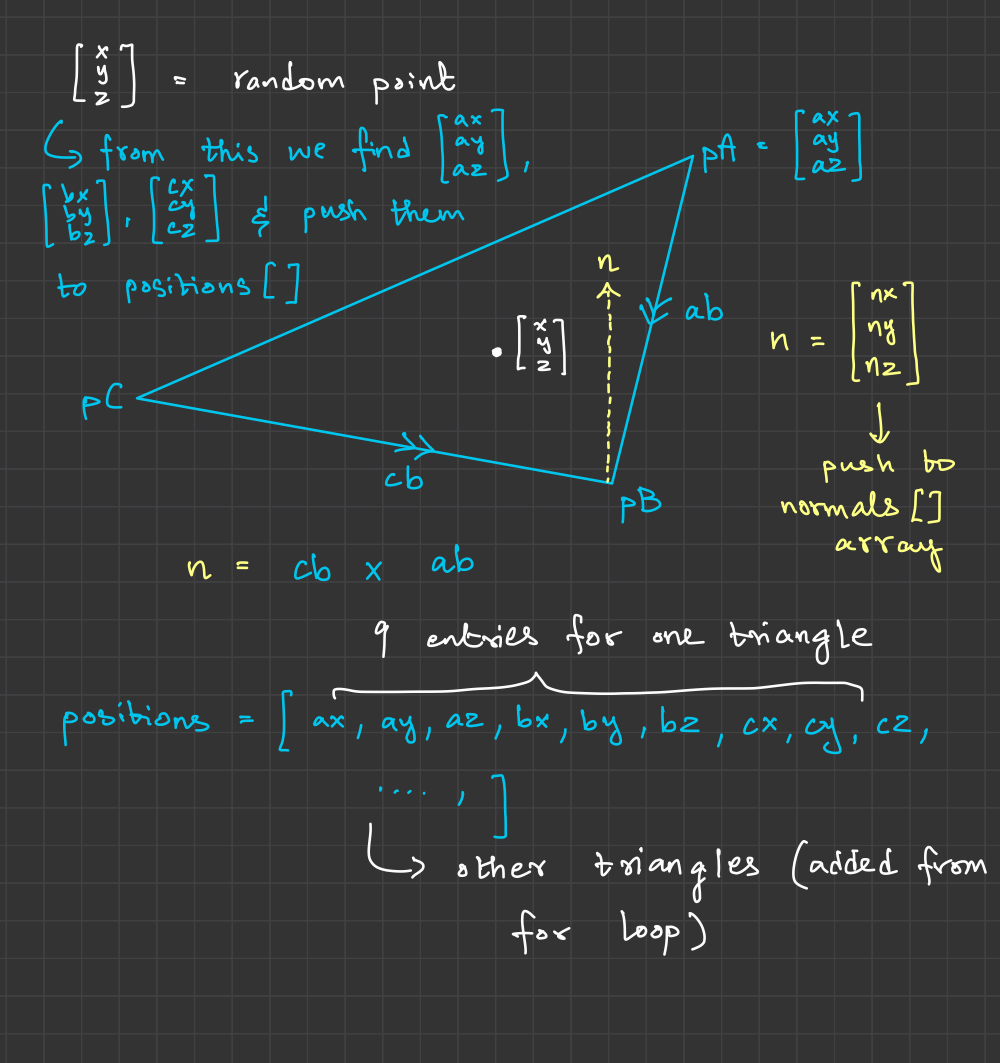 [x y z] = random point
↳ from this we find [ax ay az],
[bx by bz], [cx cy cz] & push them
to positions []
pA = [ax ay az]
n
ab
[x y z]
n = [nx ny nz]
↓
push to
normals []
array
pC
cb
pB
n = cb x ab
9 entries for one triangle
positions = [ ax, ay, az, bx, by, bz, cx, cy, cz,
...., ]
↳ other triangles (added from
for loop)